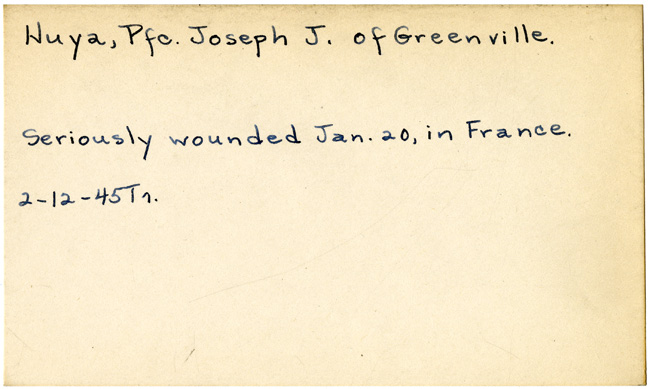 Huya, Pfc. Joseph J. of Greenville.
Seriously wounded Jan. 20, in France.
2-12-45Tr.